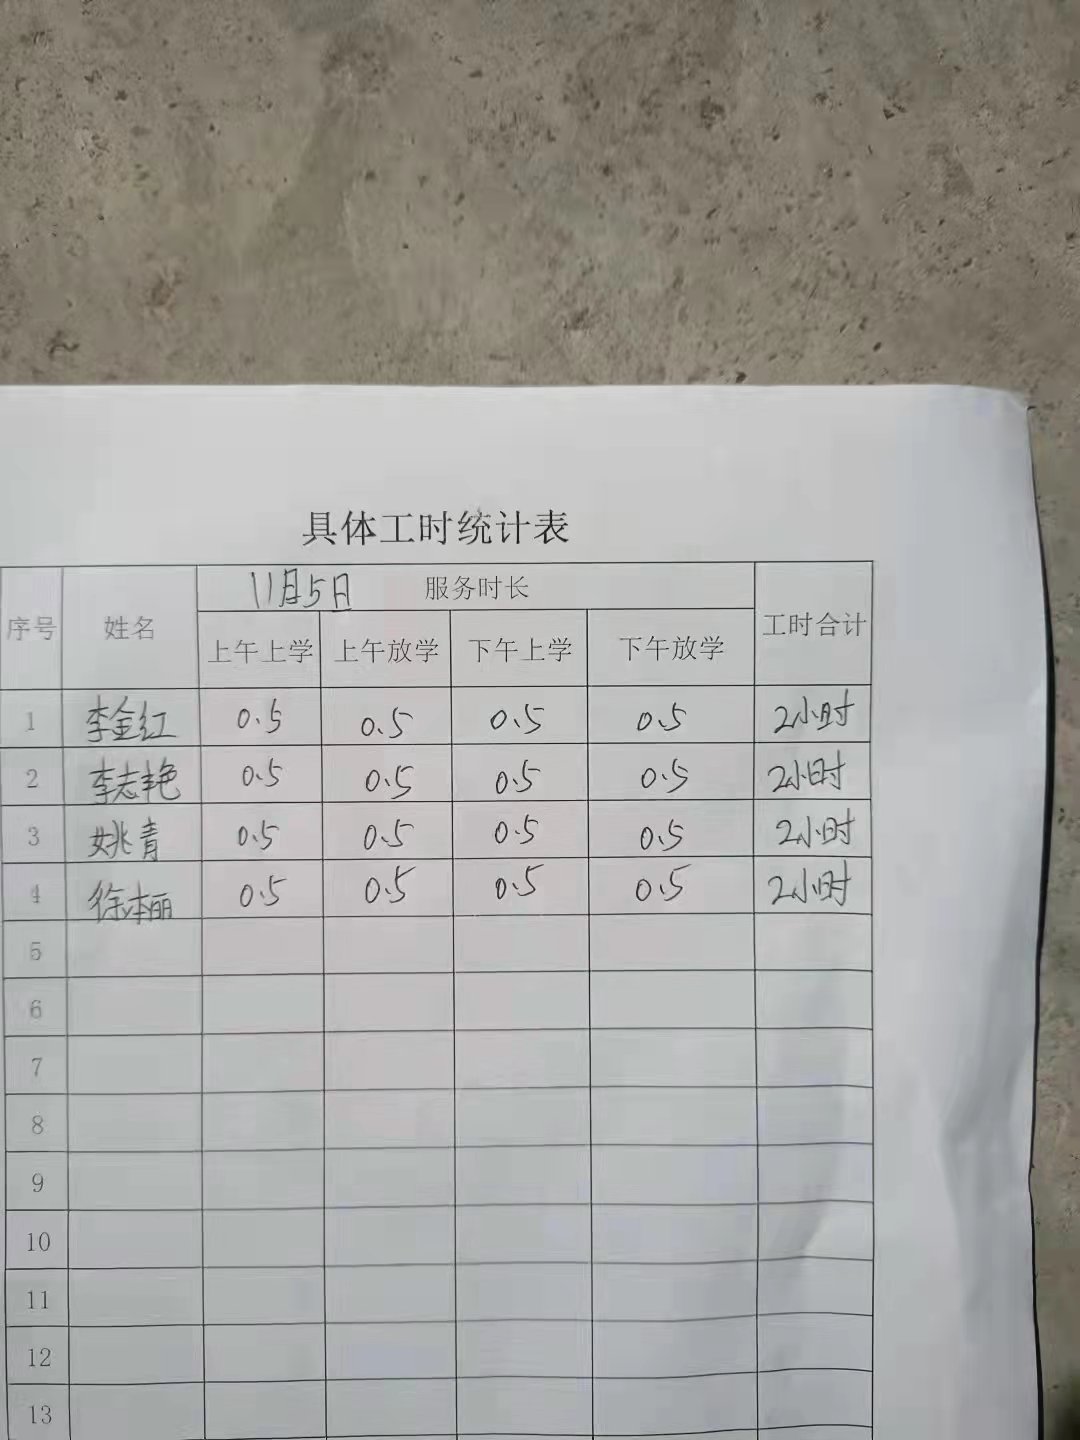 具体工时统计表
序号 姓名 11月5日 服务时长 工时合计
上午上学 上午放学 下午上学 下午放学
1 李金红 0.5 0.5 0.5 0.5 2小时
2 李志艳 0.5 0.5 0.5 0.5 2小时
3 姚青 0.5 0.5 0.5 0.5 2小时
4 徐本丽 0.5 0.5 0.5 0.5 2小时
5
6
7
8
9
10
11
12
13